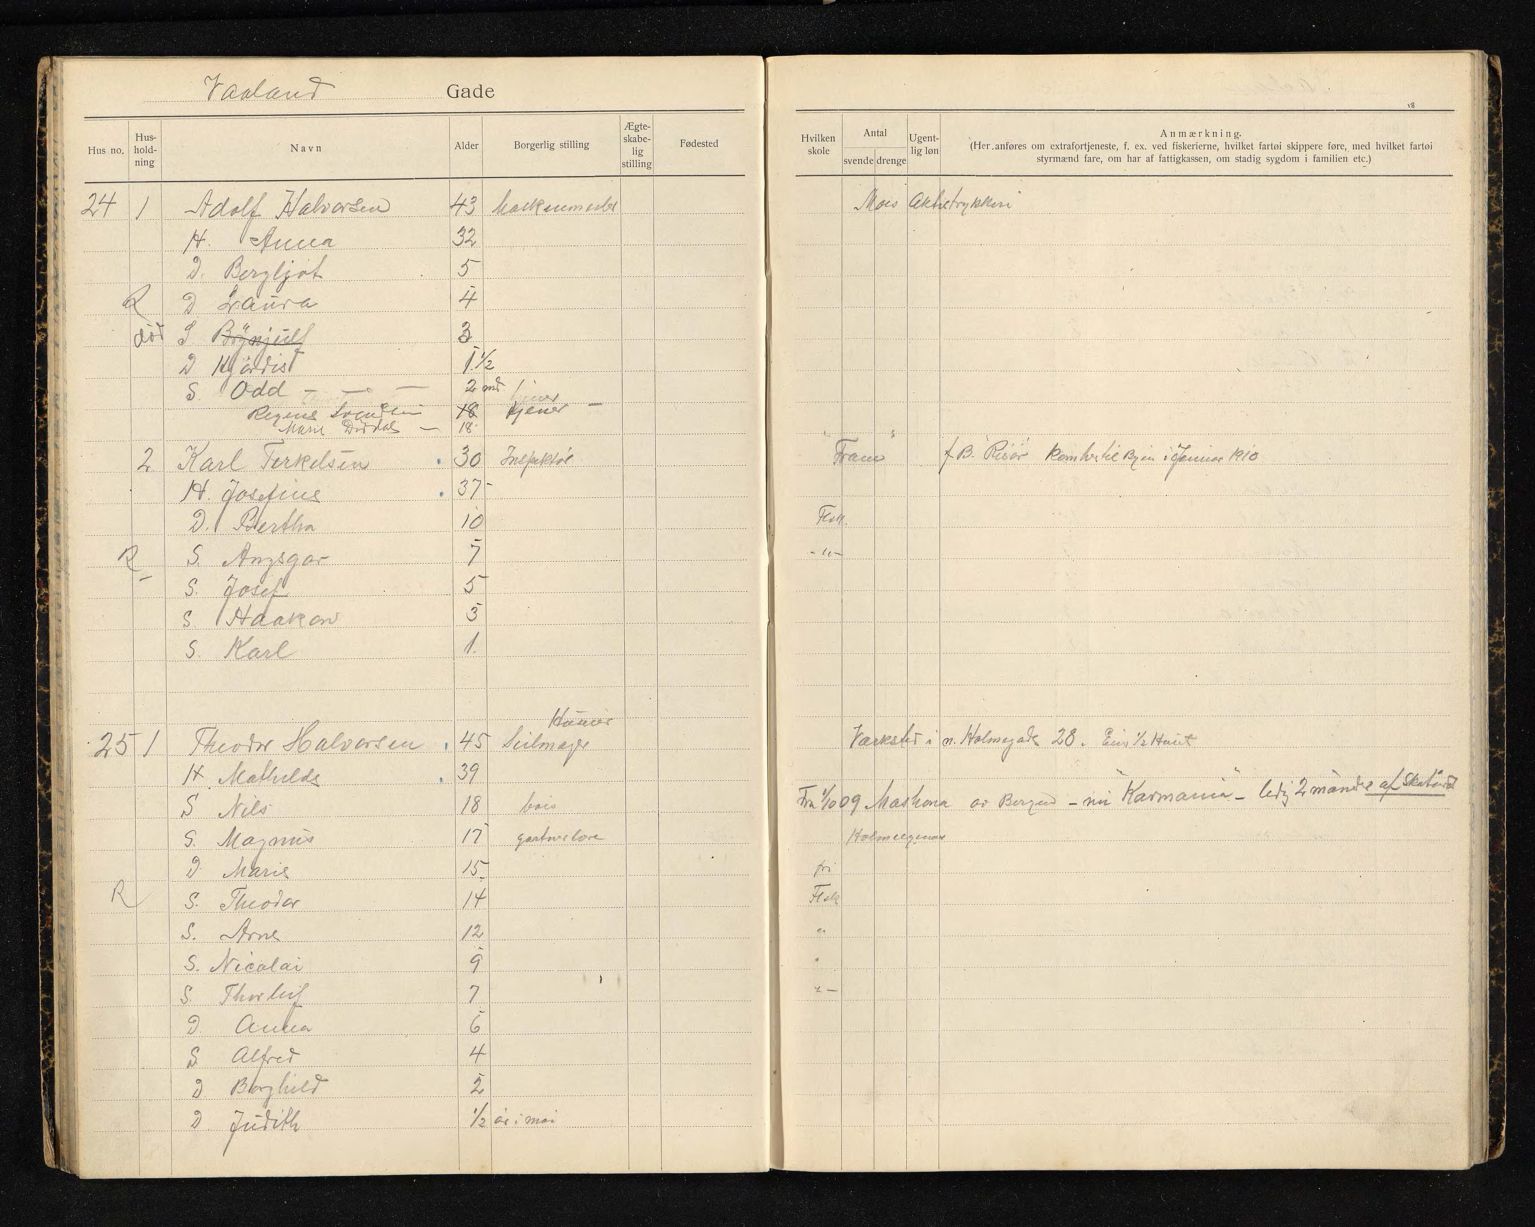 Vaaland Gade
18
Hus no. Hus-hold-ning Navn Alder Borgerlig stilling Ægte-skabe-lig stilling Fødested Hvilken skole Antal svende drenge Ugent-lig løn Anmærkning.
(Her anføres om extrafortjeneste, f. ex. ved fiskerierne, hvilket fartøi skippere føre, med hvilket fartøi
styrmænd fare, om har af fattigkassen, om stadig sygdom i familien etc.)
24 1 Adolf Halvorsen 43
H. Anna 32
D. Bergljot 5
R D Laura 4
død S Brynjulf 3
D Hjördis 1 1/2
S. Odd — — — 2 md
Svendsen 18 tjener —
Marie — 18
2 Karl Terkelsen 30 Inspektør "Fram" f B. Risør kom her til Byen i Januar 1910
H. Josefine 37
D. Bertha 10
R S. Ansgar 7 - " -
S. Josef 5
S. Haakon 3
S. Karl 1.
25 1 Theodor Halvorsen 45 Seilmager Værksted i n. Holmegade 28. Eier 1/2 Huset
H. Mathilde 39
S Nils 18 Fra 1/10 09 av Bergen - nu "Karmania" - ledig 2 måneder
S. Magnus 17
D. Marie 15. fri
R S. Theodor 14
S. Arne 12 "
S. Nicolai 9 "
S. Thorleif 7 " —
D. Anna 6
S. Alfred 4
D Borghild 2
D Judith 1/2 år i mai